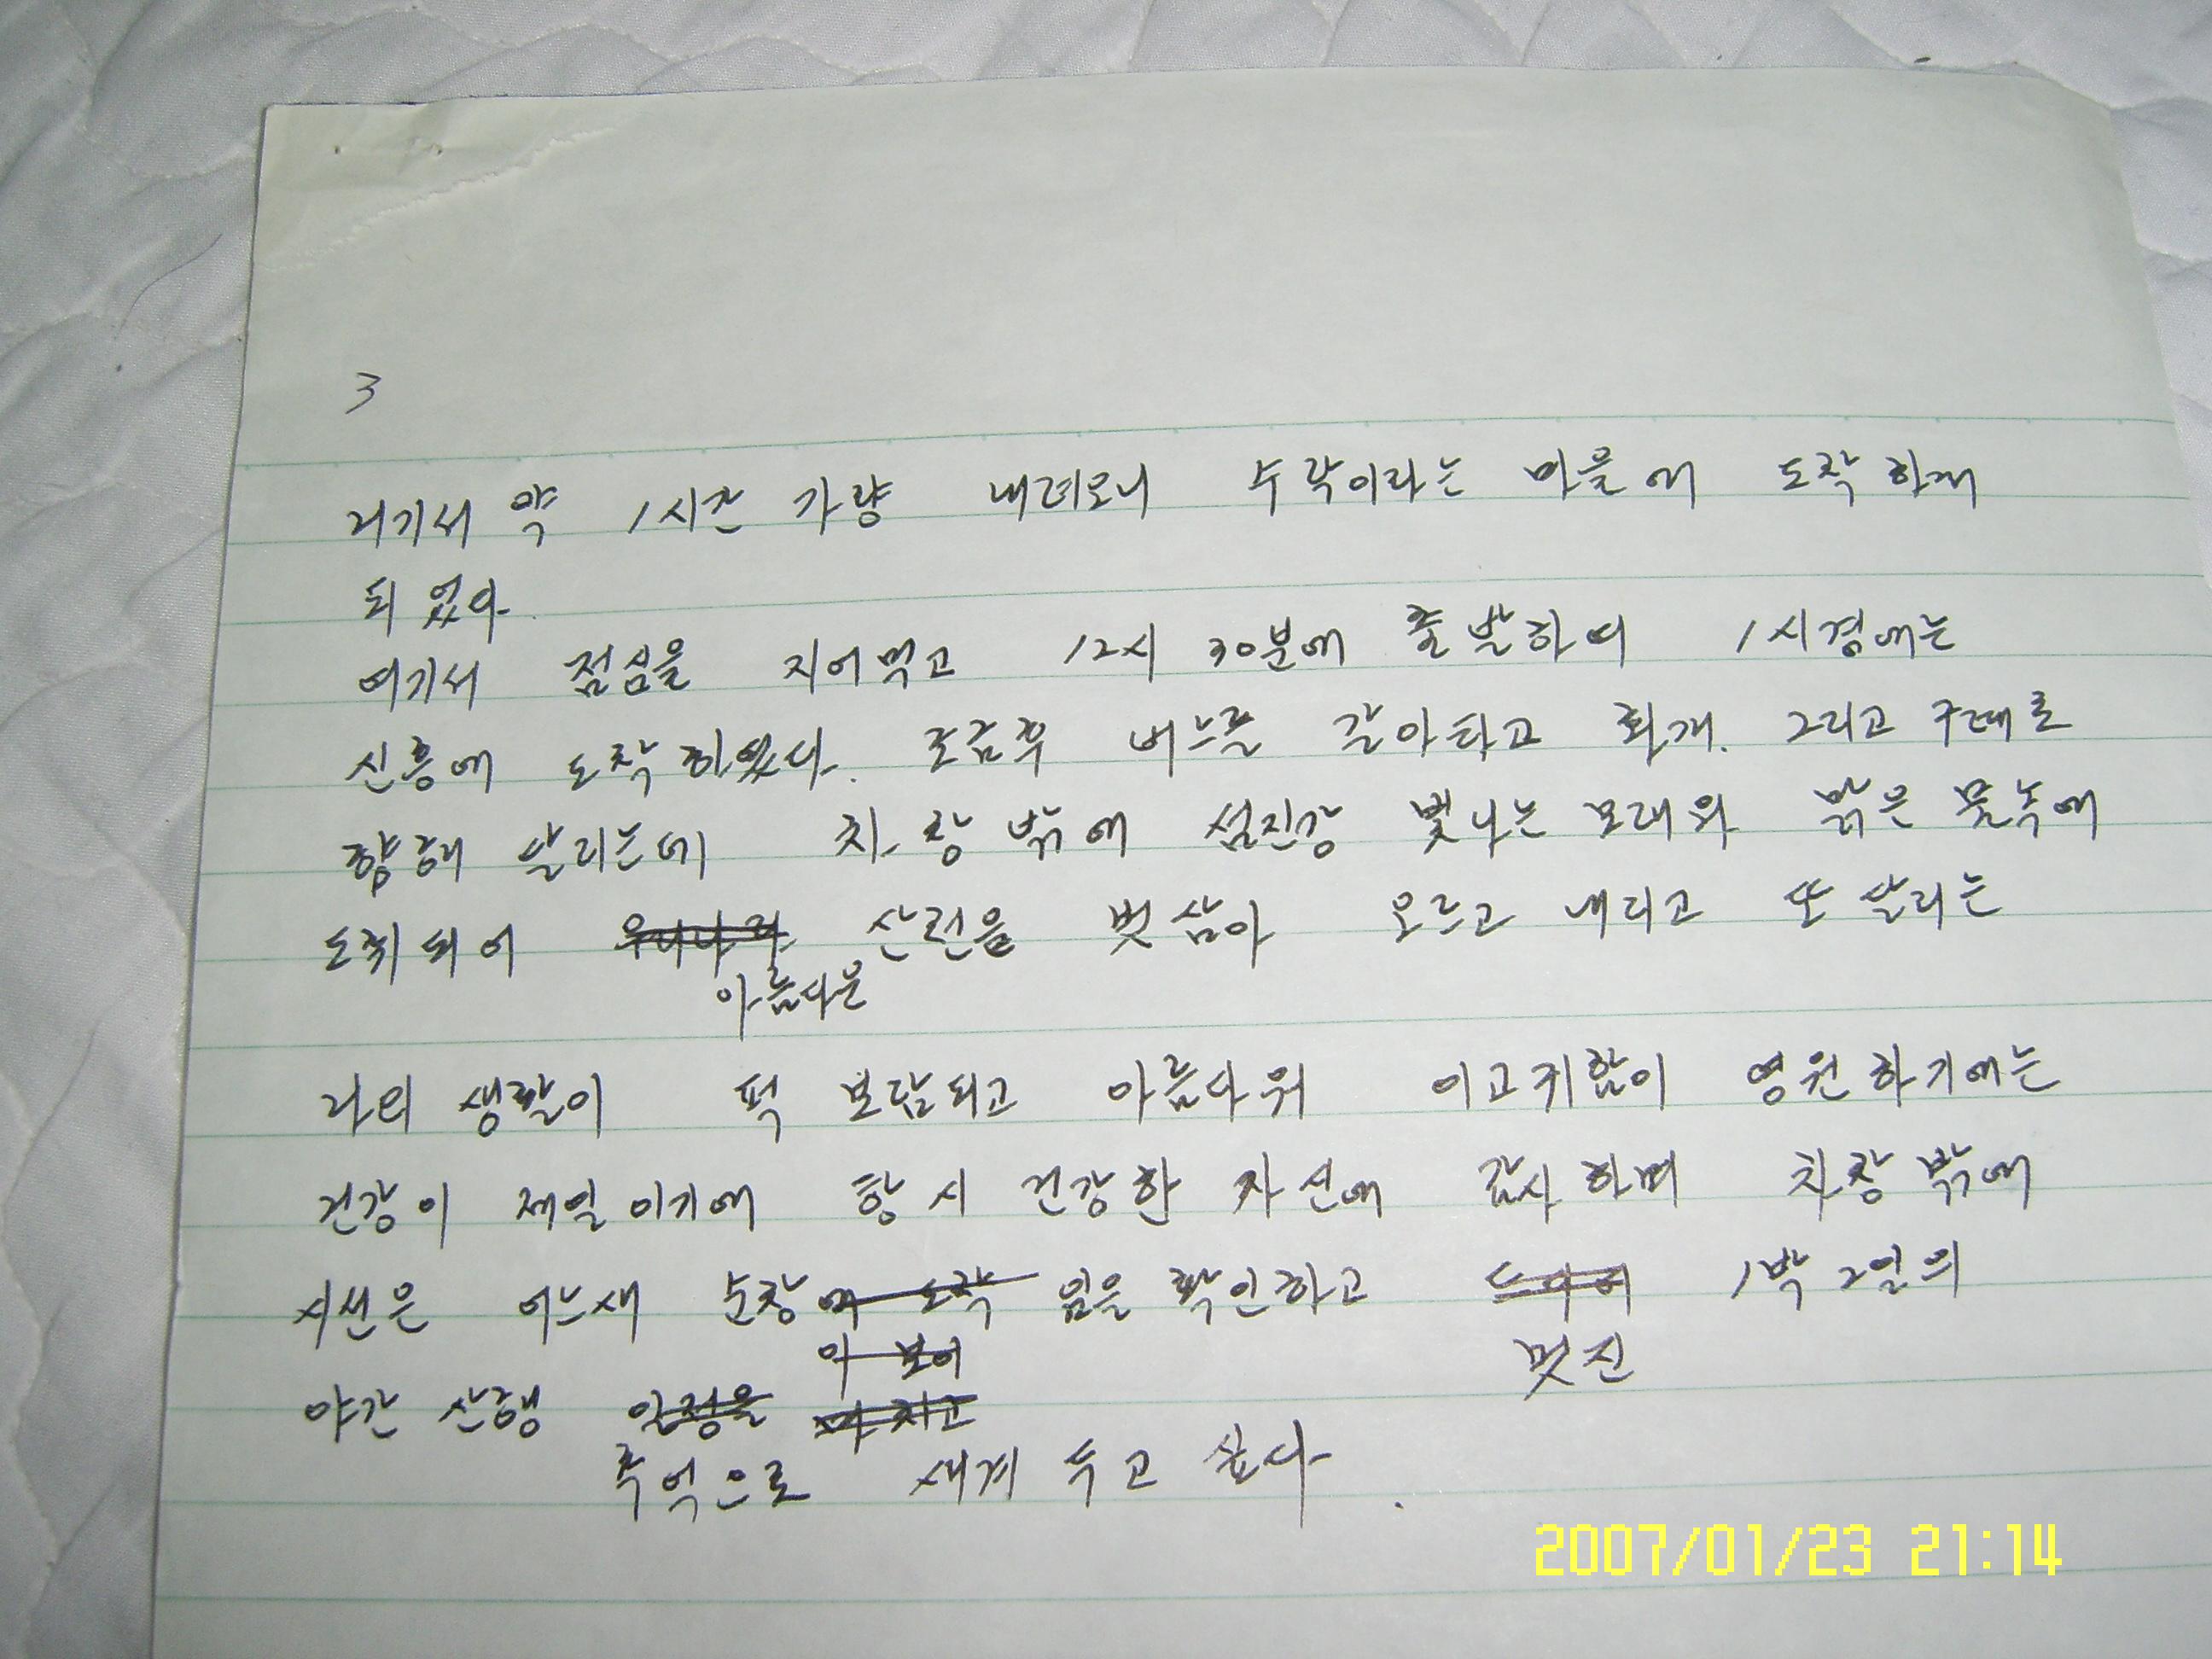 3
거기서 약 1시간 가량 내려오니 수락이라는 마을에 도착하게
되었다
여기서 점심을 지어먹고 12시 30분에 출발하여 1시경에는
신흥에 도착하였다. 조금후 버스를 갈아타고 화개. 그리고 구례로
향해 달리는데 차창밖에 섬진강 빛나는 모래와 맑은 물속에
도취되어 우리나라 산천을 벗삼아 오르고 내리고 또 달리는
아름다운
나의 생활이 퍽 보람되고 아름다워 이 고귀함이 영원하기에는
건강이 제일이기에 항시 건강한 자신에 감사하며 차창밖에
시선은 어느새 순창에 도착 임을 확인하고 드디어 1박 2일의
이 보여 멋진
야간 산행 일정을 마치고
추억으로 새겨 두고 싶다.
2007/01/23 21:14